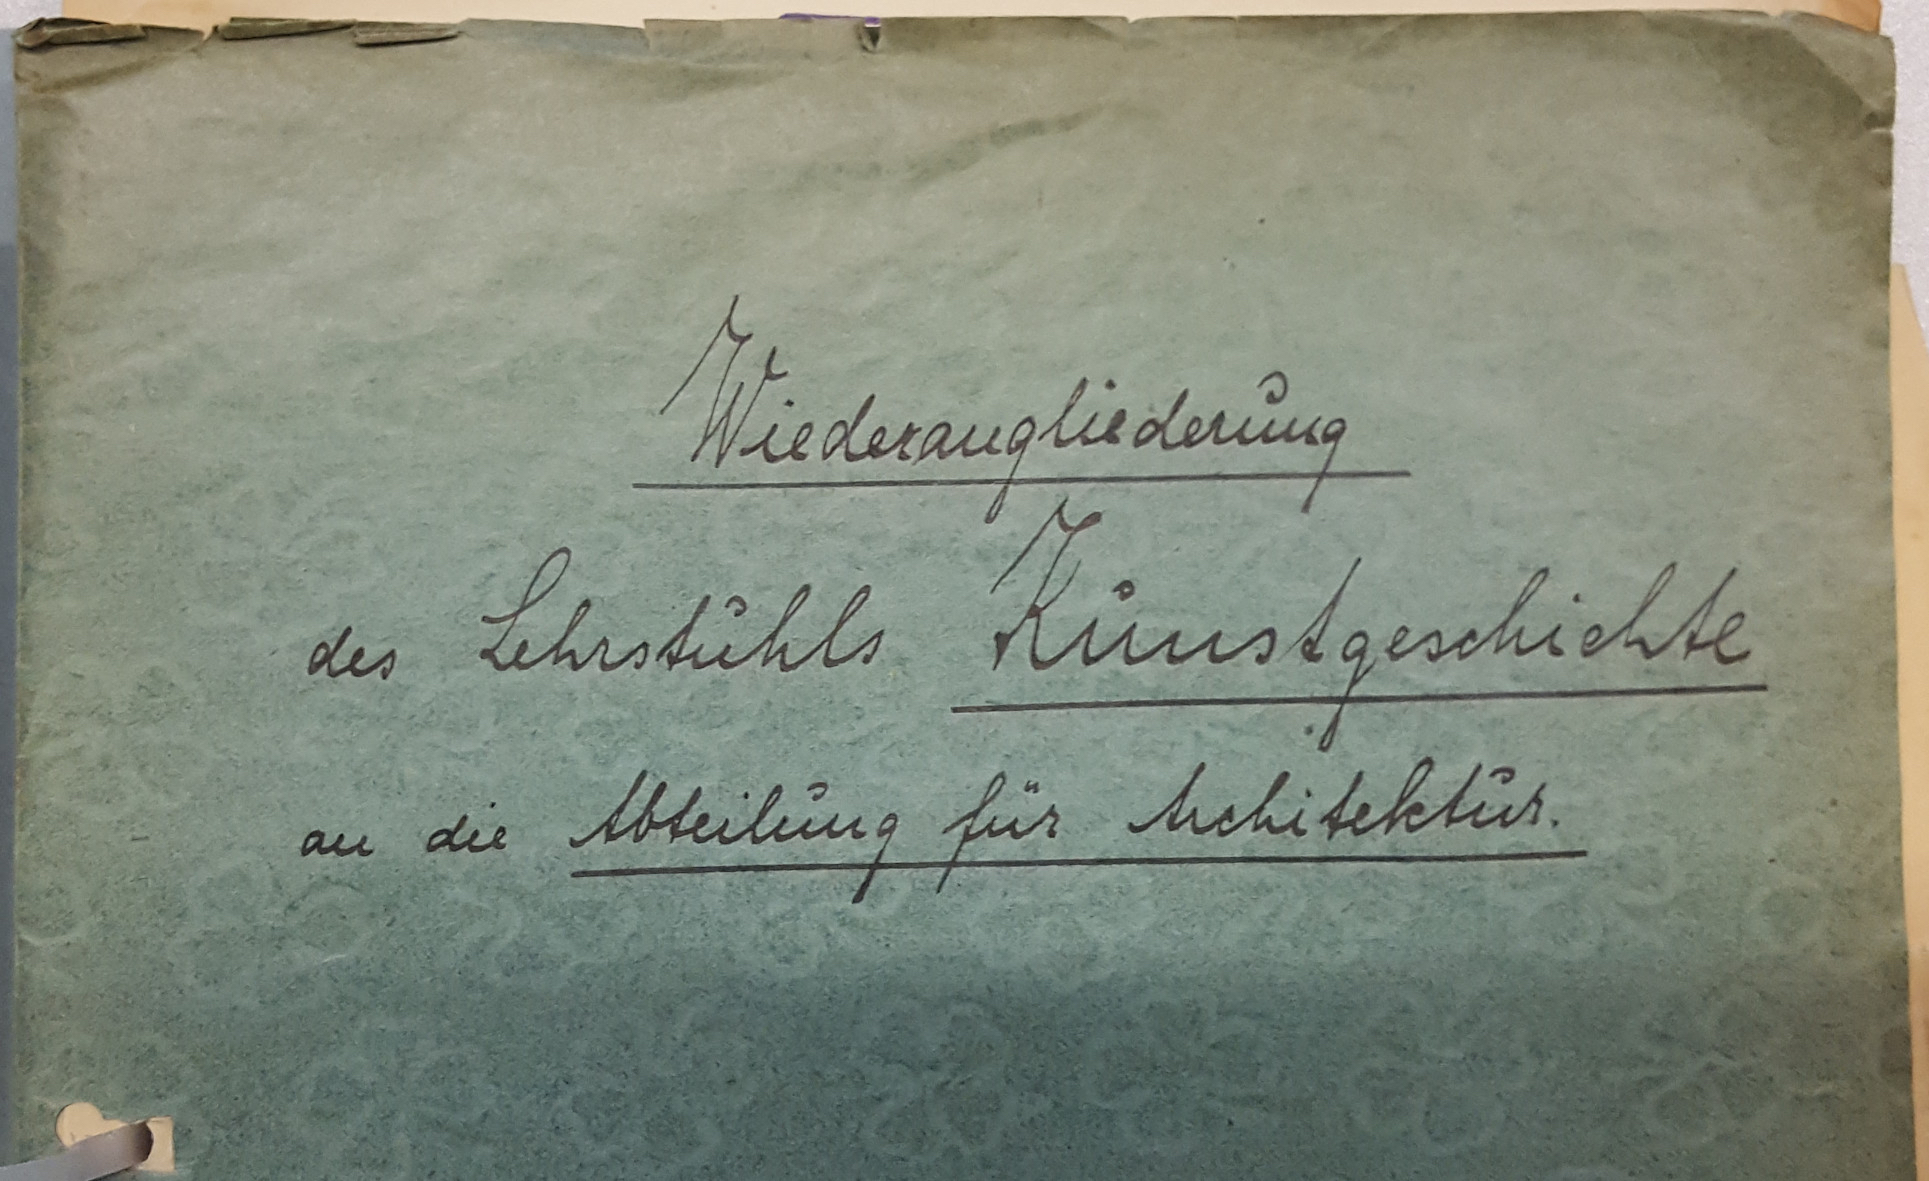 Wiederangliederung
des Lehrstuhls Kunstgeschichte
an die Abteilung für Architektur.